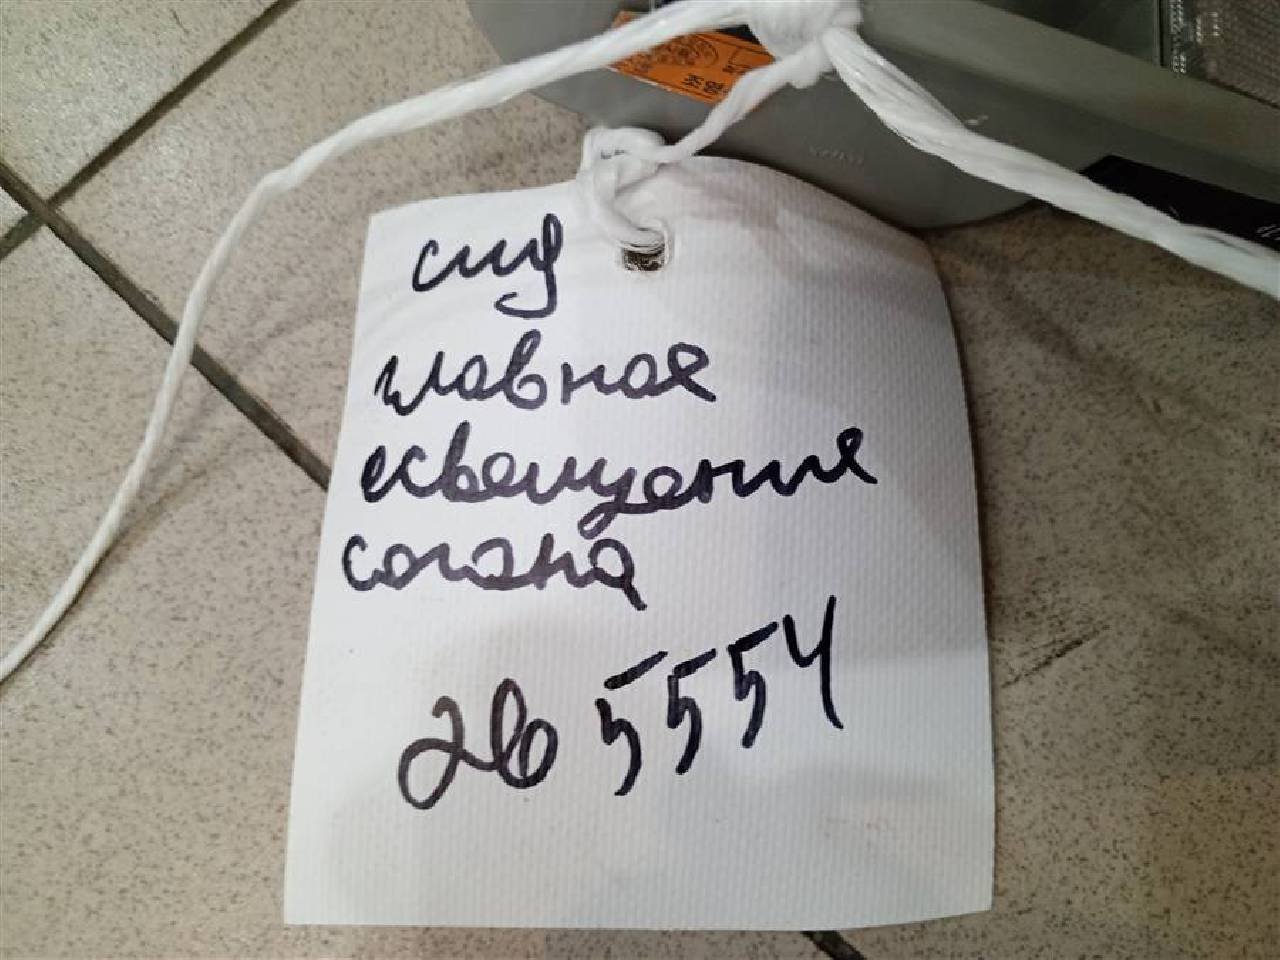 сид
главная
освещения
согана
265554